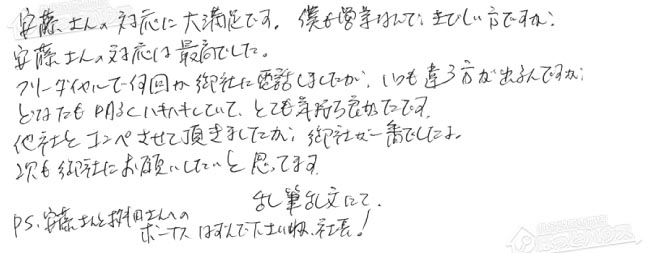 安藤さんの対応に大満足です。僕も営業なんで、きびしい方ですが、
安藤さんの対応は最高でした。
フリーダイヤルで何回か御社に電話しましたが、いつも違う方が出るんですが、
どなたも明るくハキハキしていて、とても気持ち良かったです。
他社とコンペさせて頂きましたが、御社が一番でしたよ。
次も御社にお願いしたいと思ってます。
乱筆乱文にて。
P.S. 安藤さんと さんへの
ボーナスはずんで下さいね、社長!